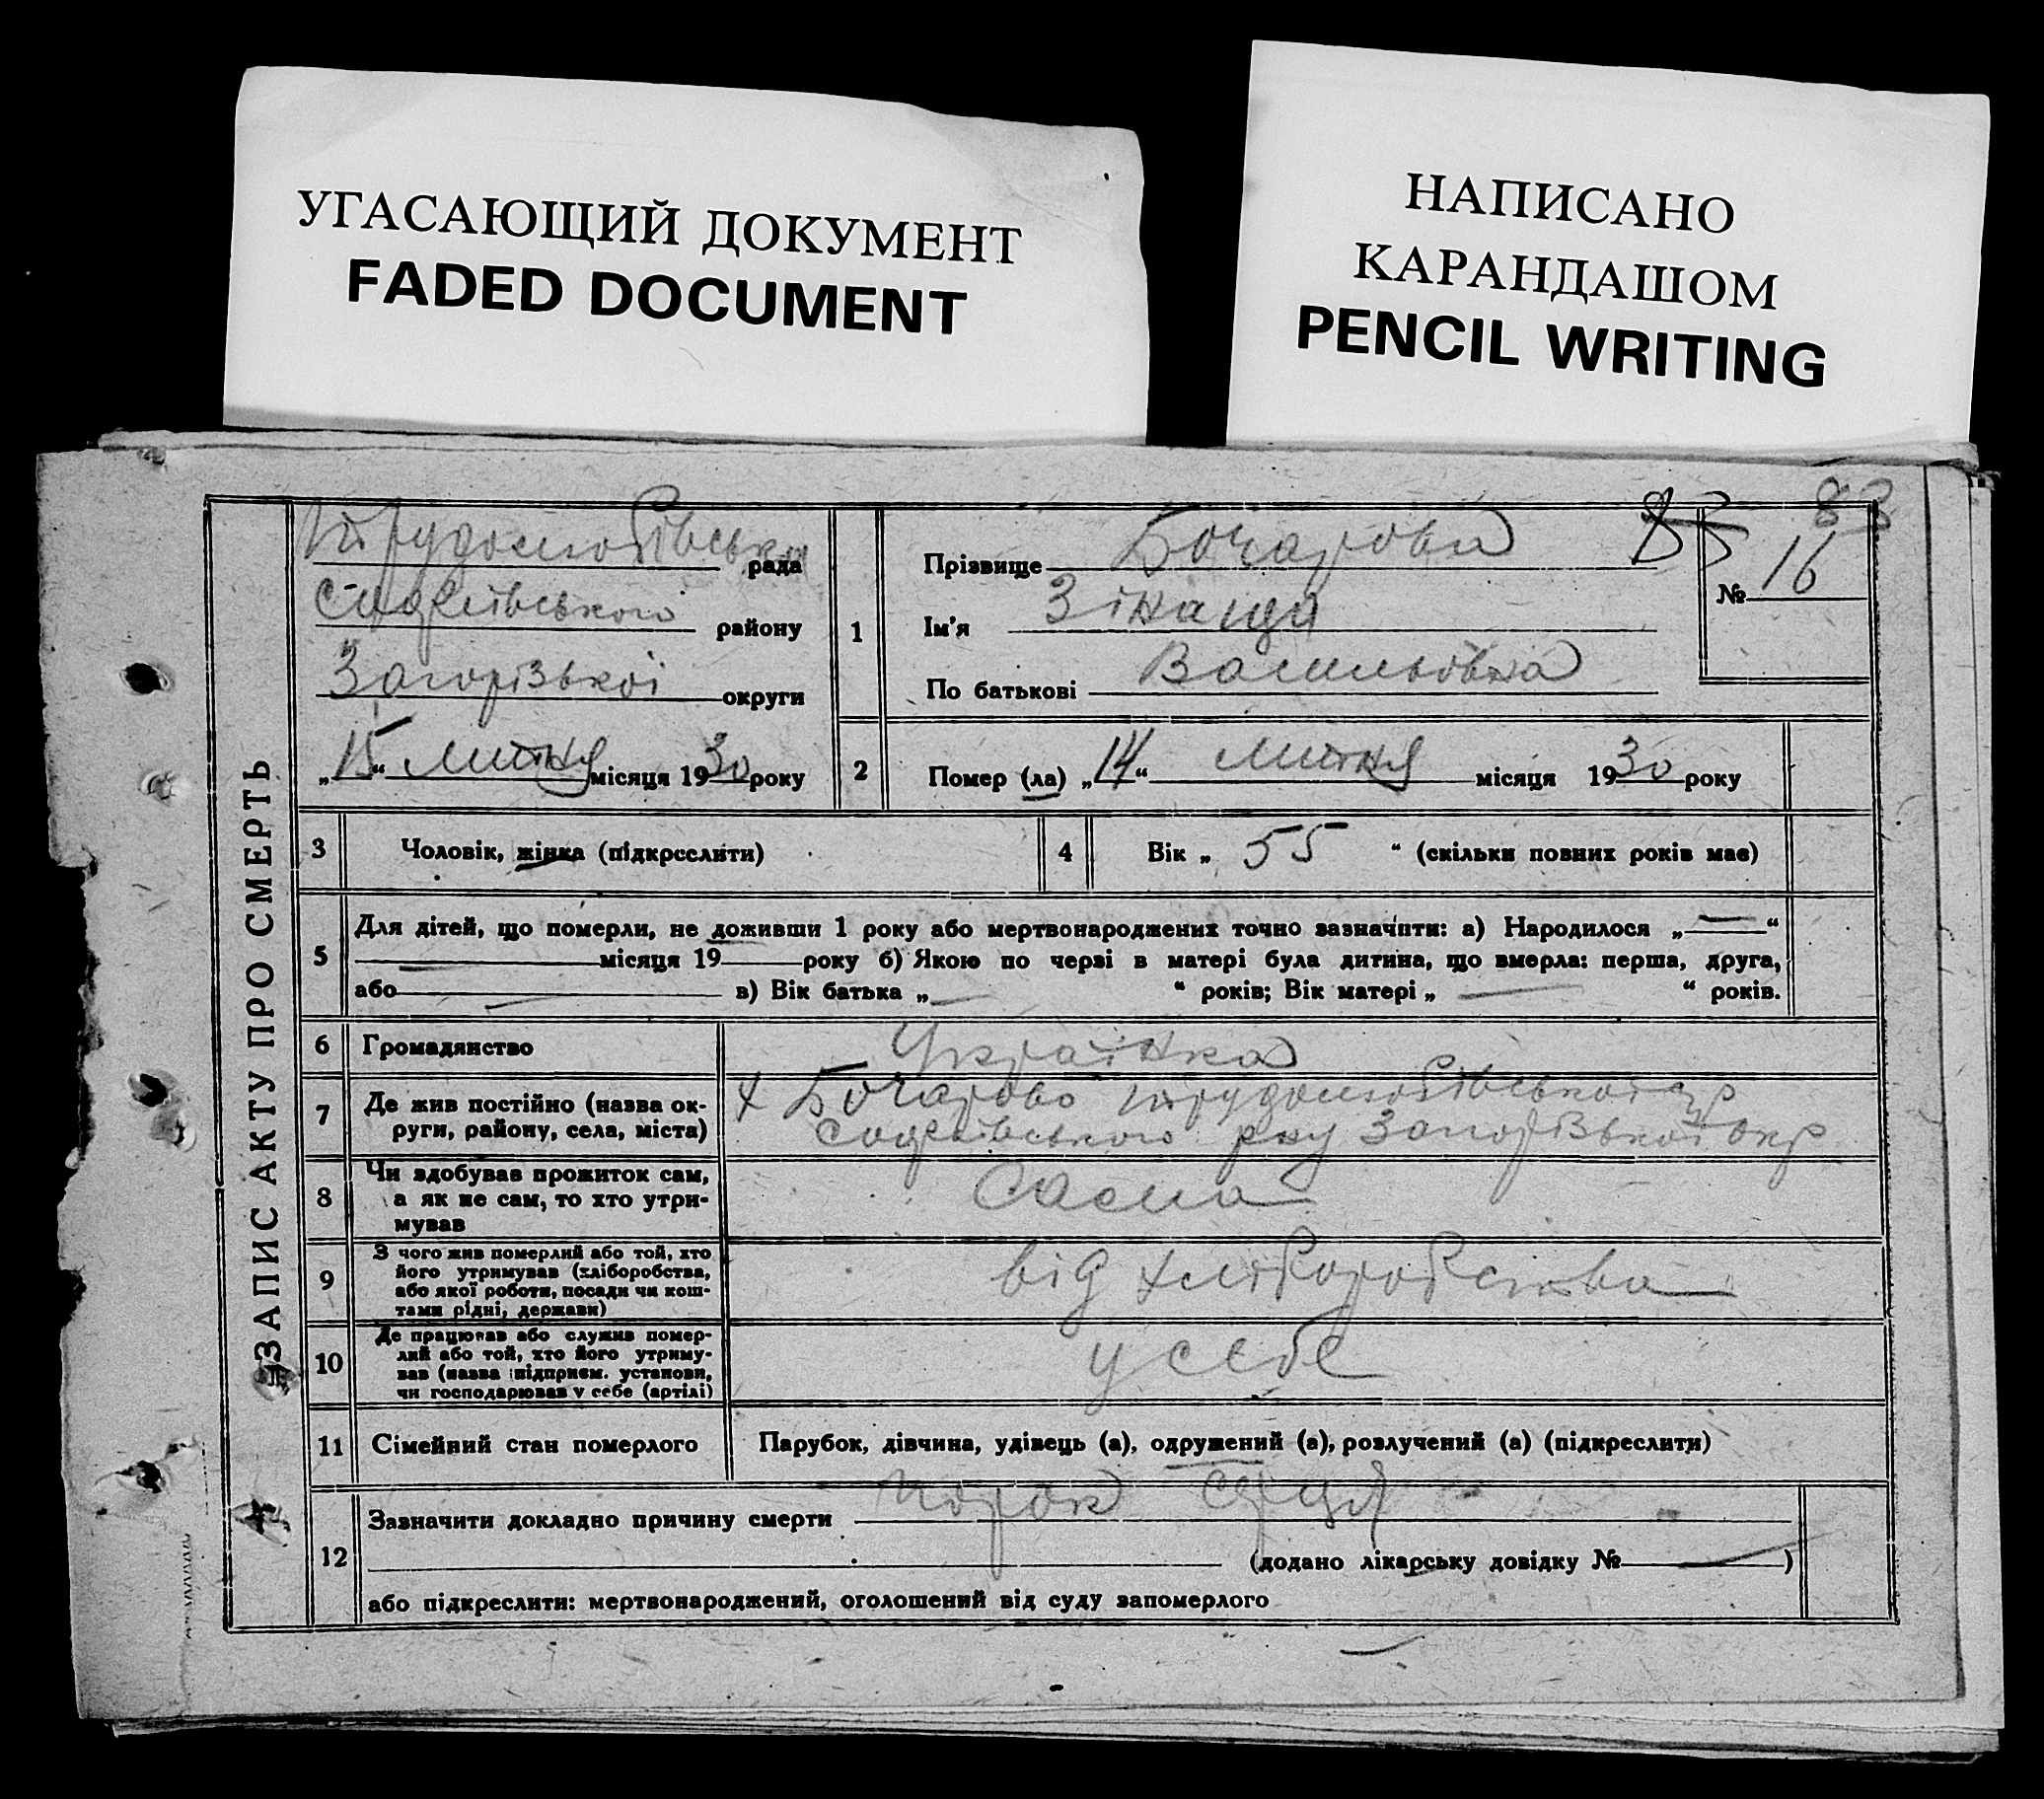 УГАСАЮЩИЙ ДОКУМЕНТ
FADED DOCUMENT
НАПИСАНО
КАРАНДАШОМ
PENCIL WRITING
83
ЗАПИС АКТУ ПРО СМЕРТЬ
Трудолюбівська рада
Софіївського району
Запорізької округи
„15“ липня місяця 1930 року
1
Прізвище Бочарова
Ім'я Зінаида
По батькові Васильовна
№ 16
2
Помер (ла) „14“ липня місяця 1930 року
3 Чоловік, жінка (підкреслити)
4 Вік „ 55 “ (скільки повних років має)
5 Для дітей, що померли, не доживши 1 року або мертвонароджених точно зазначити: а) Народилося „—“
— місяця 19 року б) Якою по черзі в матері була дитина, що вмерла: перша, друга,
або — в) Вік батька „ — “ років; Вік матері „ — “ років.
6 Громадянство Українка
7 Де жив постійно (назва ок-
руги, району, села, міста)
х Бочарово Трудолюбівської с/р
Софіївського р-ну Запорізької окр
8 Чи здобував прожиток сам,
а як не сам, то хто утри-
мував
Сама
9 З чого жив померлий або той, хто
його утримував (хліборобства,
або якої роботи, посади чи кош-
тами рідні, держави)
від хліборобства
10 Де працював або служив помер-
лий або той, хто його утриму-
вав (назва підприєм. установи,
чи господарював у себе (артілі)
у себе
11 Сімейний стан померлого Парубок, дівчина, удівець (а), одружений (а), розлучений (а) (підкреслити)
12 Зазначити докладно причину смерти порок серця
(додано лікарську довідку № — )
або підкреслити: мертвонароджений, оголошений від суду запомерлого